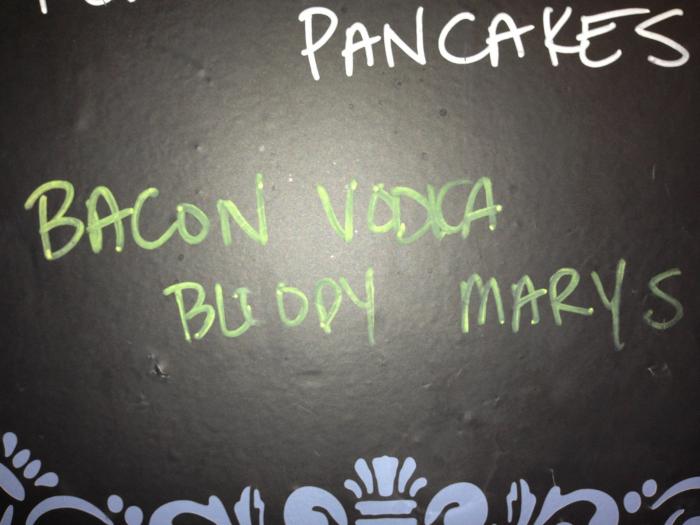 PANCAKES
BACON VODKA
BLOODY MARYS